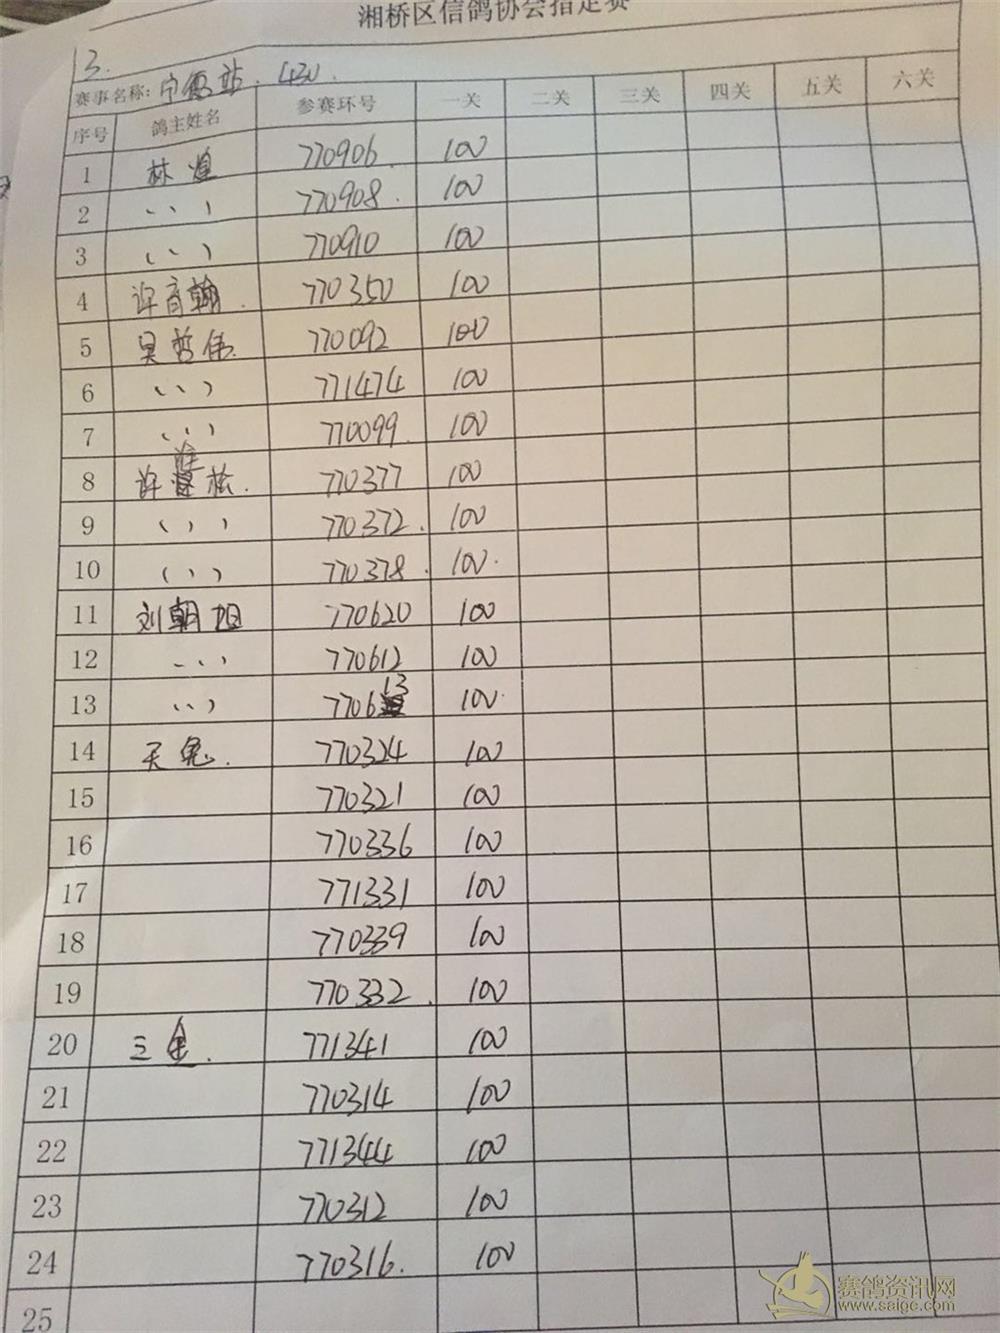 湘桥区信鸽协会指定赛
3.
赛事名称: 宁德站. 430.
序号 鸽主姓名 参赛环号 一关 二关 三关 四关 五关 六关
1 林煌 770906. 100
2 、、) 770908. 100
3 、、) 770910 100
4 许育翰. 770350 100
5 吴哲伟. 770092 100
6 、、) 771474 100
7 、、) 770099. 100
8 许 松. 770377 100
9 、、) 770372. 100
10 、、) 770378. 100.
11 刘朝旭 770620 100
12 、、、 770612 100
13 、、) 770613 100.
14 天兔. 770324 100
15 770321 100
16 770336 100
17 771331 100
18 770339 100
19 770332. 100
20 三金. 771341 100
21 770314 100
22 771344 100
23 770312 100
24 770316. 100
25
赛鸽资讯网
www.saige.com